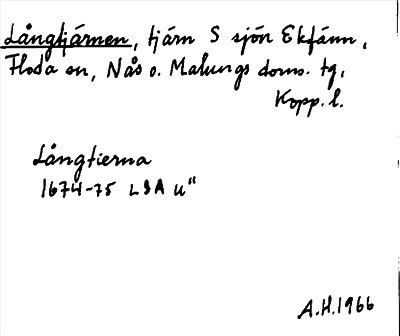 Långtjärnen, tjärn S sjön Ekfänn,
Floda sn, Nås o. Malungs doms. tg,
Kopp. l.
Långtierna
1674-75 LSA U"
A.H. 1966